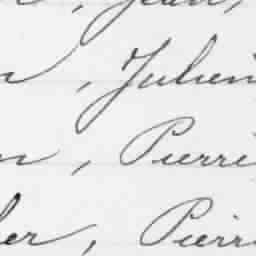 , Jean,
n, Julien
n, Pierre
ler, Pierr